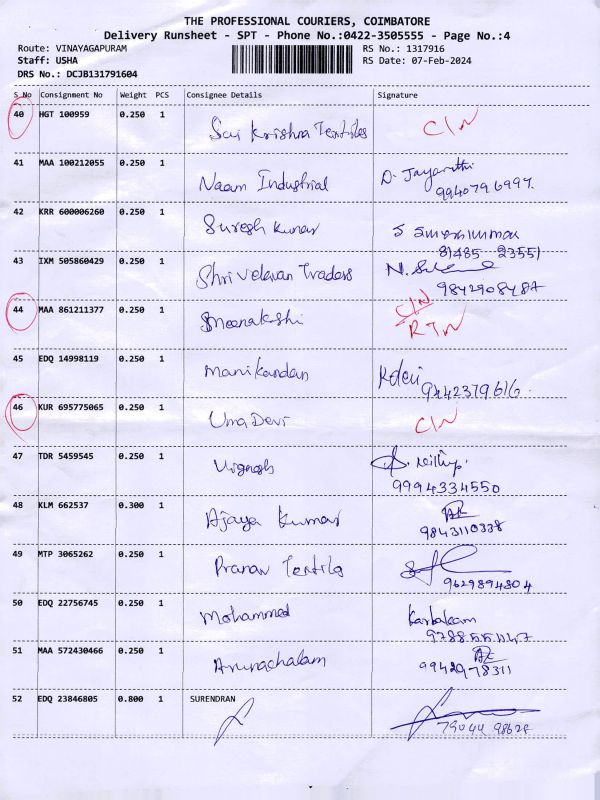 THE PROFESSIONAL COURIERS, COIMBATORE
Delivery Runsheet - SPT - Phone No.:0422-3505555 - Page No.:4
Route: VINAYAGAPURAM RS No.: 1317916
Staff: USHA RS Date: 07-Feb-2024
DRS No.: DCJB131791604
S.No Consignment No Weight PCS Consignee Details Signature
40 HGT 100959 0.250 1 Sai Krishna Textiles C/N
41 MAA 100212055 0.250 1 Naam Industrial D. Jayanthi
9940796997.
42 KRR 600006260 0.250 1 Suresh Kumar
81485 23551
43 IXM 505860429 0.250 1 Shri Velavan Traders
9842908487
44 MAA 861211377 0.250 1 Meenakshi C/N
RTN
45 EDQ 14998119 0.250 1 Manikandan
9442379616.
46 KUR 695775065 0.250 1 Uma Devi C/N
47 TDR 5459545 0.250 1 Vignesh
9994334550
48 KLM 662537 0.300 1 Ajaya Kumar
9843110338
49 MTP 3065262 0.250 1 Pranav Textile
9629894804
50 EDQ 22756745 0.250 1 Mohammed
51 MAA 572430466 0.250 1 Arunachalam
9942978311
52 EDQ 23846805 0.800 1 SURENDRAN
79044 98628